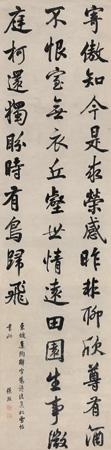 寄傲知今是求榮感昨非聊欣尊有酒
不恨室無衣丘壑世情遠田園生事微
庭柯還獨盼時有鳥歸飛
東坡集
張照